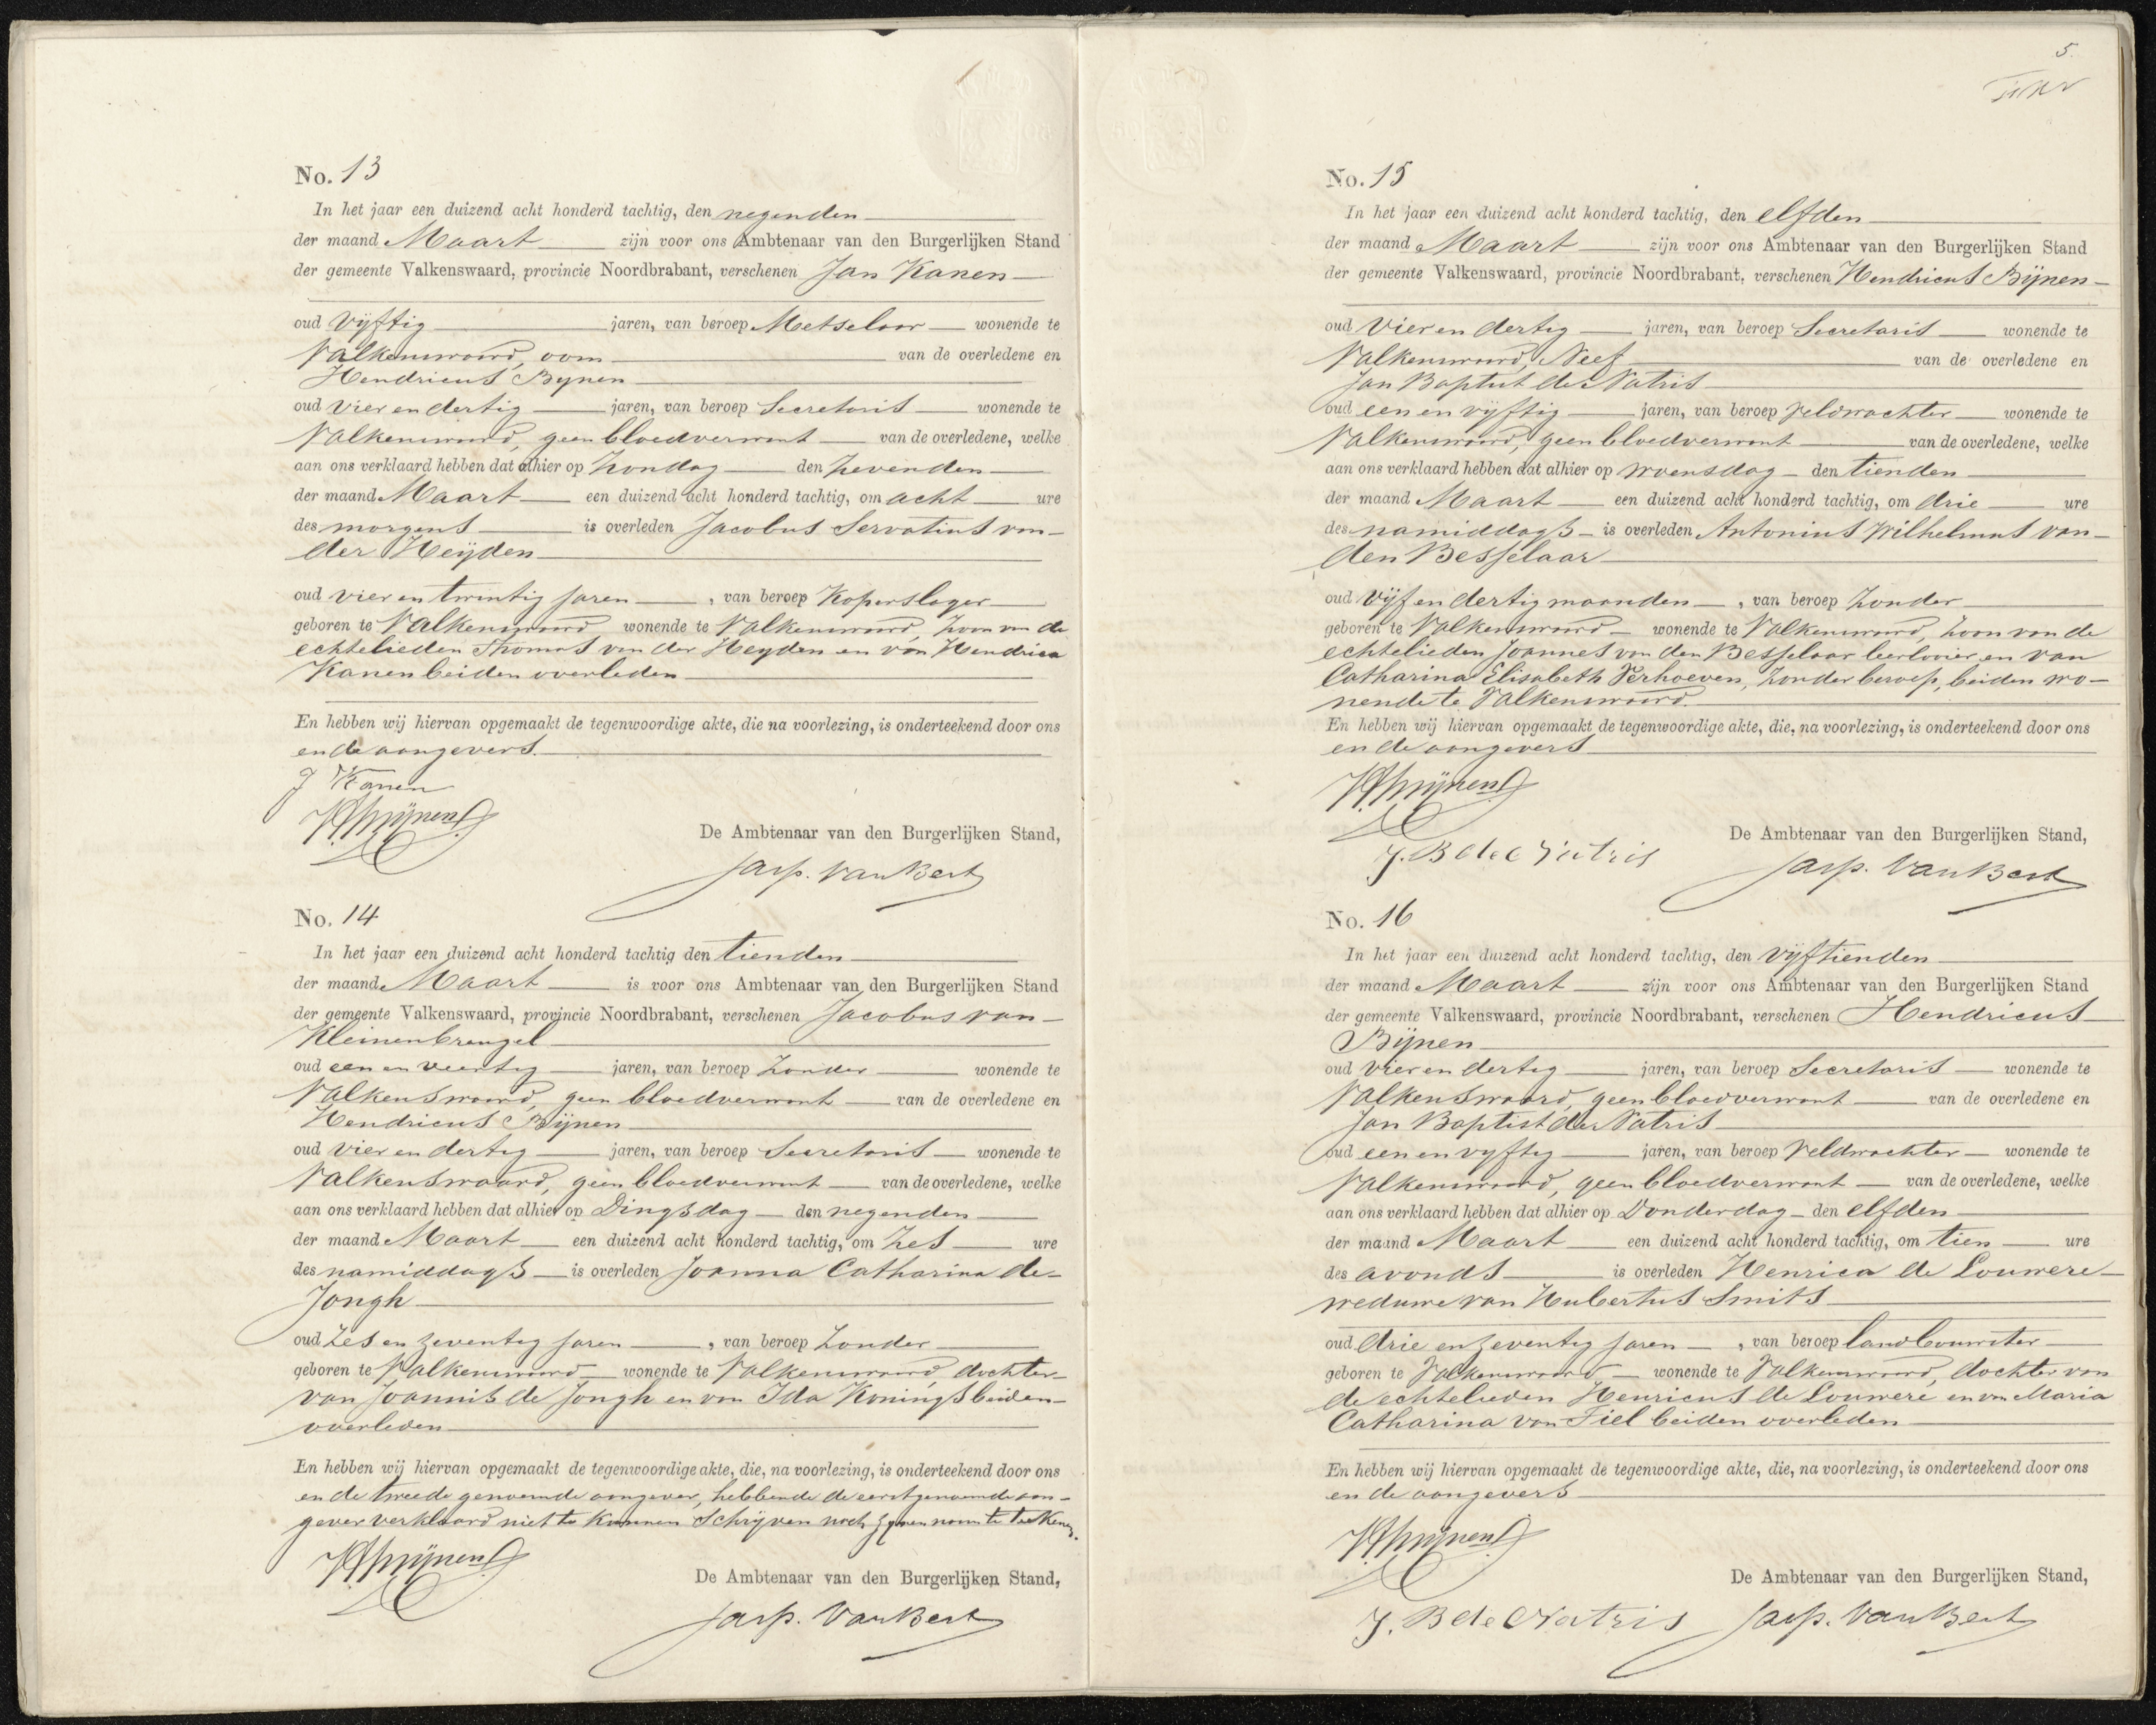 No. 13
In het jaar een duizend acht honderd tachtig, den negenden
der maand Maart zijn voor ons Ambtenaar van den Burgerlijken Stand
der gemeente Valkenswaard, provincie Noordbrabant, verschenen Jan Kanen
oud vijftig jaren, van beroep Metselaar wonende te
Valkenswaard, oom van de overledene en
Hendricus Bijnen
oud vier en dertig jaren, van beroep Secretaris wonende te
Valkenswaard, geen bloedverwant van de overledene, welke
aan ons verklaard hebben dat alhier op Zondag den zevenden
der maand Maart een duizend acht honderd tachtig, om acht ure
des morgens is overleden Jacobus Servatius van
der Heijden
oud vier en twintig jaren, van beroep Koperslager
geboren te Valkenswaard wonende te Valkenswaard, zoon van de
echtelieden Thomas van der Heyden en van Hendrica
Kanen beiden overleden
En hebben wij hiervan opgemaakt de tegenwoordige akte, die na voorlezing, is onderteekend door ons
en de aangevers.
J Kanen
De Ambtenaar van den Burgerlijken Stand,
Jasp. Van Best
No. 14
In het jaar een duizend acht honderd tachtig den tienden
der maand Maart is voor ons Ambtenaar van den Burgerlijken Stand
der gemeente Valkenswaard, provincie Noordbrabant, verschenen Jacobus van
Kleinenbreugel
oud een en veertig jaren, van beroep Zonder wonende te
Valkenswaard, geen bloedverwant van de overledene en
Hendricus Bijnen
oud vier en dertig jaren, van beroep Secretaris wonende te
Valkenswaard, geen bloedverwant van de overledene, welke
aan ons verklaard hebben dat alhier op Dingsdag den negenden
der maand Maart een duizend acht honderd tachtig, om zes ure
des namiddags is overleden Joanna Catharina de
Jongh
oud zes en zeventig jaren, van beroep Zonder
geboren te Valkenswaard wonende te Valkenswaard, dochter
van Joannis de Jongh en van Ida Konings beiden
overleden
En hebben wij hiervan opgemaakt de tegenwoordige akte, die, na voorlezing, is onderteekend door ons
en de tweede genoemde aangever, hebbende de eerstgenoemde aan-
gever verklaard niet te kunnen schrijven noch zynen naam te teekenen.
De Ambtenaar van den Burgerlijken Stand,
Jasp. Van Best
5.
No. 15
In het jaar een duizend acht honderd tachtig, den elfden
der maand Maart zijn voor ons Ambtenaar van den Burgerlijken Stand
der gemeente Valkenswaard, provincie Noordbrabant, verschenen Hendricus Bijnen
oud vier en dertig jaren, van beroep Secretaris wonende te
Valkenswaard, Neef van de overledene en
Jan Baptist de Natris
oud een en vijftig jaren, van beroep Veldwachter wonende te
Valkenswaard, geen bloedverwant van de overledene, welke
aan ons verklaard hebben dat alhier op Woensdag den tienden
der maand Maart een duizend acht honderd tachtig, om drie ure
des namiddags is overleden Antonius Wilhelmus van
den Besselaar
oud vijf en dertig maanden, van beroep Zonder
geboren te Valkenswaard wonende te Valkenswaard, zoon van de
echtelieden Joannes van den Besselaar leerlooier en van
Catharina Elisabeth Verhoeven, zonder beroep, beiden wo-
nende te Valkenswaard.
En hebben wij hiervan opgemaakt de tegenwoordige akte, die, na voorlezing, is onderteekend door ons
en de aangevers
J. B de Natris
De Ambtenaar van den Burgerlijken Stand,
Jasp. Van Best
No. 16
In het jaar een duizend acht honderd tachtig, den vijftienden
der maand Maart zijn voor ons Ambtenaar van den Burgerlijken Stand
der gemeente Valkenswaard, provincie Noordbrabant, verschenen Hendricus
Bijnen
oud vier en dertig jaren, van beroep Secretaris wonende te
Valkenswaard, geen bloedverwant van de overledene en
Jan Baptist de Natris
oud een en vyftig jaren, van beroep Veldwachter wonende te
Valkenswaard, geen bloedverwant van de overledene, welke
aan ons verklaard hebben dat alhier op Donderdag den elfden
der maand Maart een duizend acht honderd tachtig, om tien ure
des avonds is overleden Henrica de Louwere
weduwe van Hubertus Smits
oud drie en zeventig jaren, van beroep landbouwster
geboren te Valkenswaard wonende te Valkenswaard, dochter van
de echtelieden Henricus de Louwere en van Maria
Catharina van Tiel beiden overleden
En hebben wij hiervan opgemaakt de tegenwoordige akte, die, na voorlezing, is onderteekend door ons
en de aangevers
De Ambtenaar van den Burgerlijken Stand,
J. B de Natris Jasp. Van Best